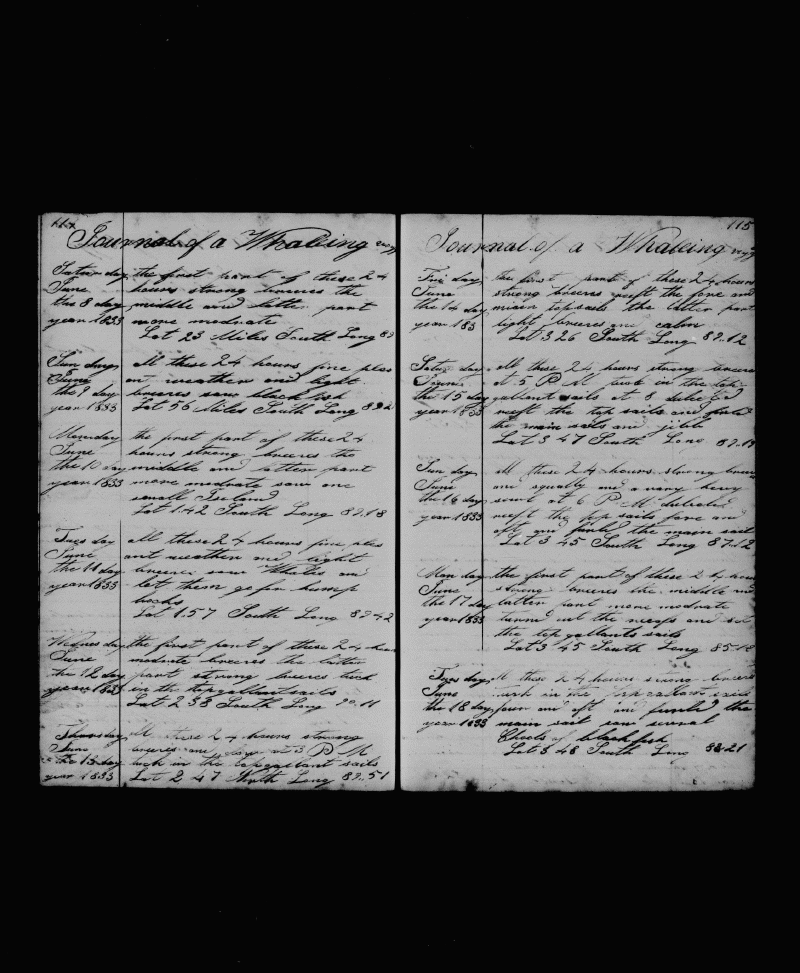 114
Journal of a Whaleing voyg
Satur day the first part of these 24
June hours strong breeses the
the 8 day middle and latter part
year 1833 more modrate
Lat 23 Miles South Long 89
Sun day All these 24 hours fine ples
June ant weather and light
the 9 day breeses saw black fish
year 1833 Lat 56 Miles South Long 89
Monday the first part of these 24
June hours strong breeses the
the 10 day middle and latter part
year 1833 more modrate saw one
small Island
Lat 1.42 South Long 89.18
Tues day All these 24 hours fine ples
June ant weather and light
the 11 day breeses saw Whales and
year 1833 let them go for hump
backs
Lat 1.57 South Long 89-42
Wednes day the first part of these 24 hours
June modrate breeses the latter
the 12 day part strong breeses tuck
year 1833 in the topgallant sails
Lat 2 38 South Long 90.11
Thursday All these 24 hours strong
June breeses and at 5 P M
the 13 day tuck in the topgallant sails
year 1833 Lat 2 47 North Long 89.51
115
Journal of a Whaleing voyg
Fri day the first part of these 24 hours
June strong breeses reeft the fore and
the 14 day main topsails the latter part
year 183 light breeses and calm
Lat 3 26 South Long 89.12
Satur day All these 24 hours strong breeses
June at 5 P M tuck in the top
the 15 day gallant sails at 8
year 1833 reeft the top sails and furled
the main sails and jibb
Lat 3 47 South Long 89.19
Sun day All these 24 hours strong breeses
June and squally and a vary hevy
the 16 day at 6 P M
year 1833 reeft the top sails fore and
aft and furled the main sail
Lat 3 45 South Long 87.12
Mon day the first part of these 24 hours
June strong breeses the middle and
the 17 day latter part more modrate
year 1833 turned out the reefs and set
the top gallants sails
Lat 3 45 South Long 85.18
Tues day All these 24 hours strong breeses
June tuck in the topgallant sails
the 18 day fore and aft and furled the
year 1833 main sail saw several
Chools of black fish
Lat 3 48 South Long 83-21